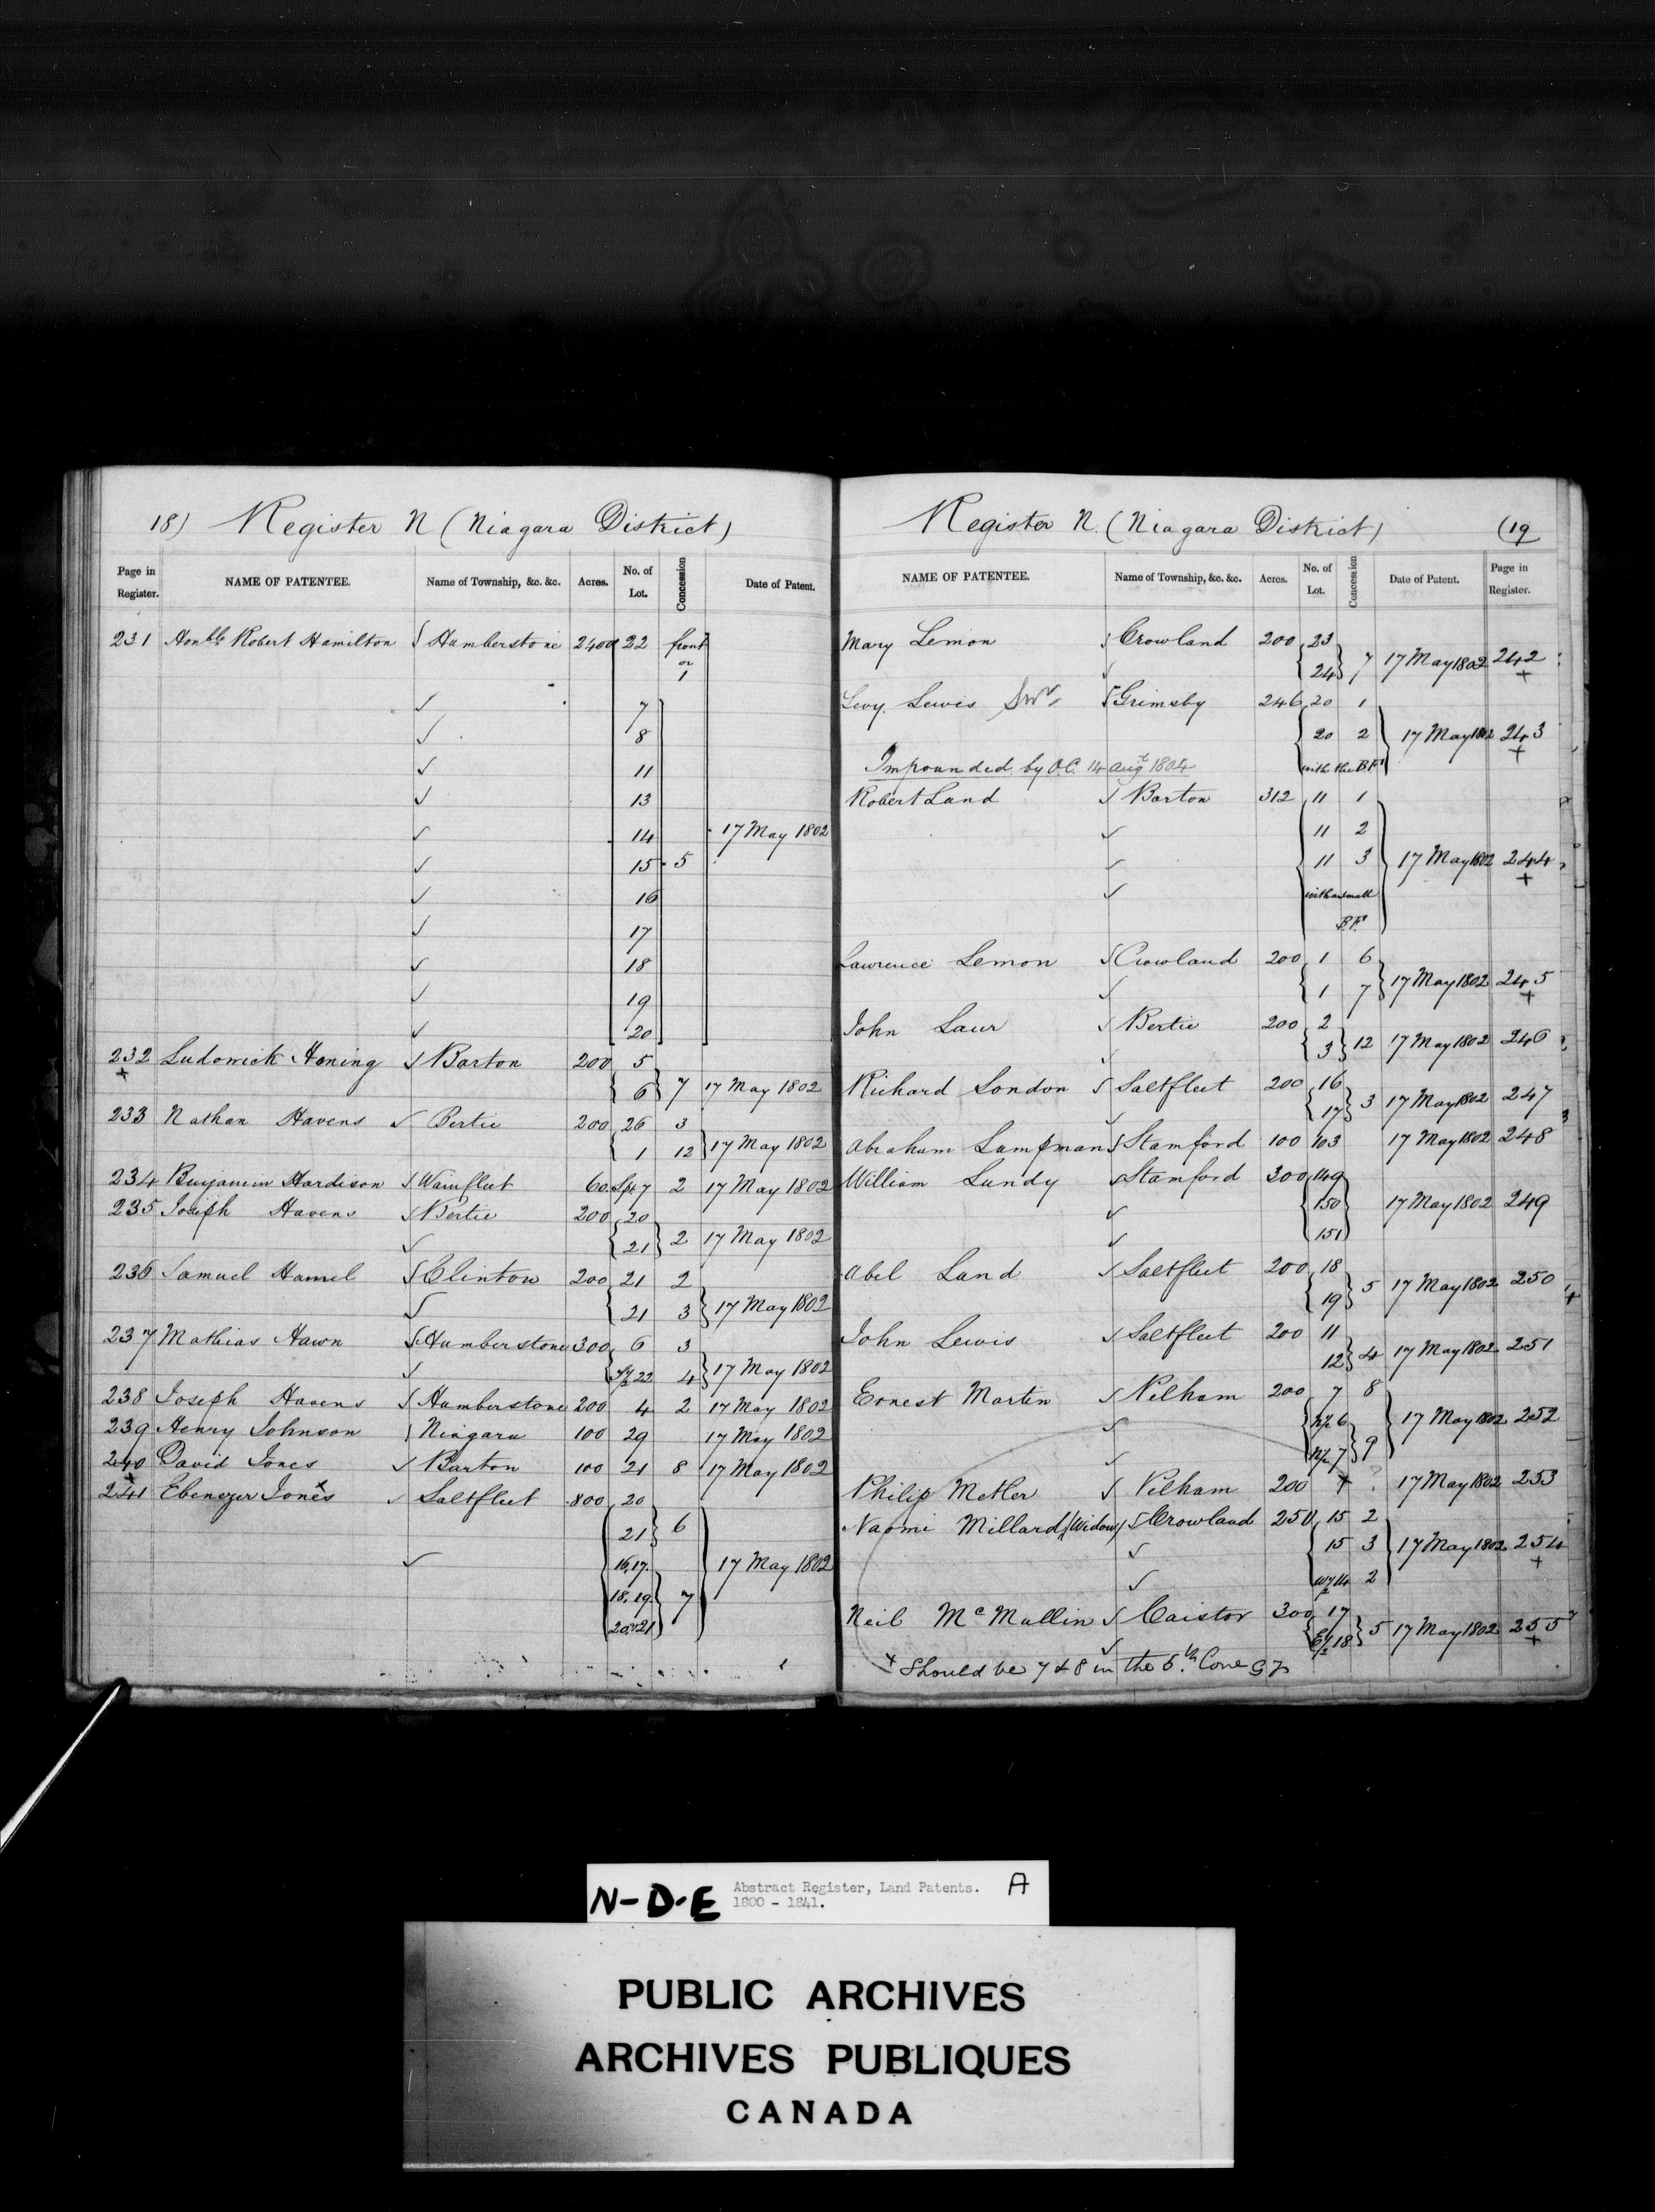 18) Register N (Niagara District)
Page in Register. NAME OF PATENTEE. Name of Township, &c. &c. Acres. No. of Lot. Concession Date of Patent.
231 Honble Robert Hamilton Humberstone 2400 22 front
or
1
✓ 7
✓ 8
✓ 11
✓ 13
✓ 14 17 May 1802
✓ 15 5
✓ 16
✓ 17
✓ 18
✓ 19
✓ 20
232 Ludowick Horning ✓ Barton 200 5
+ 6 7 17 May 1802
233 Nathan Havens ✓ Bertie 200 26 3
1 12 17 May 1802
234 Benjamin Hardison ✓ Wainfleet 60 7 2 17 May 1802
235 Joseph Havens ✓ Bertie 200 20
✓ 21 2 17 May 1802
236 Samuel Clinton 200 21 2
✓ 21 3 17 May 1802
237 Mathias Hawn Humberstone 300 6 3
✓ 22 4 17 May 1802
238 Joseph Havens Humberstone 200 4 2 17 May 1802
239 Henry Johnson Niagara 100 29 17 May 1802
240 David Jones ✓ Barton 100 21 8 17 May 1802
241 Ebenezer Jones ✓ Saltfleet 800 20
21 6
✓ 16,17. 17 May 1802
18.19. 7
20 21
Register N. (Niagara District) (19
NAME OF PATENTEE. Name of Township, &c. &c. Acres. No. of Lot. Concession Date of Patent. Page in Register.
Mary Lemon Crowland 200 23
✓ 24 7 17 May 1802 242
+
Levy Lewis Grimsby 246 20 1
20 2 17 May 1802 243
+
Impounded by O.C. 14 Augt 1804 with the B.Ft
Robert Land ✓ Barton 312 11 1
✓ 11 2
✓ 11 3 17 May 1802 244
+
✓ with a small
B.Ft
Lawrence Lemon Crowland 200 1 6
✓ 1 7 17 May 1802 245
+
John Laur ✓ Bertie 200 2
✓ 3 12 17 May 1802 246
Richard London Saltfleet 200 16
✓ 17 3 17 May 1802 247
Abraham Lampman Stamford 100 103 17 May 1802 248
William Lundy ✓ Stamford 300 149
✓ 150 17 May 1802 249
✓ 151
Abel Land ✓ Saltfleet 200 18
19 5 17 May 1802 250
John Lewis ✓ Saltfleet 200 11
12 4 17 May 1802 251
Ernest Martin ✓ Pelham 200 7 8
✓ N½ 6 17 May 1802 252
✓ N½ 7 9
Philip Metler Pelham 200 + ? 17 May 1802 253
Naomi Millard (Widow) Crowland 250 15 2
✓ 15 3 17 May 1802 254
+
✓ W½ 14 2
Neil McMullin ✓ Caistor 300 17
✓ E½ 18 5 17 May 1802 255
+
+ Should be 7 & 8 in the 5th Conc
N-D-E Abstract Register, Land Patents. A
1800 - 1841.
PUBLIC ARCHIVES
ARCHIVES PUBLIQUES
CANADA